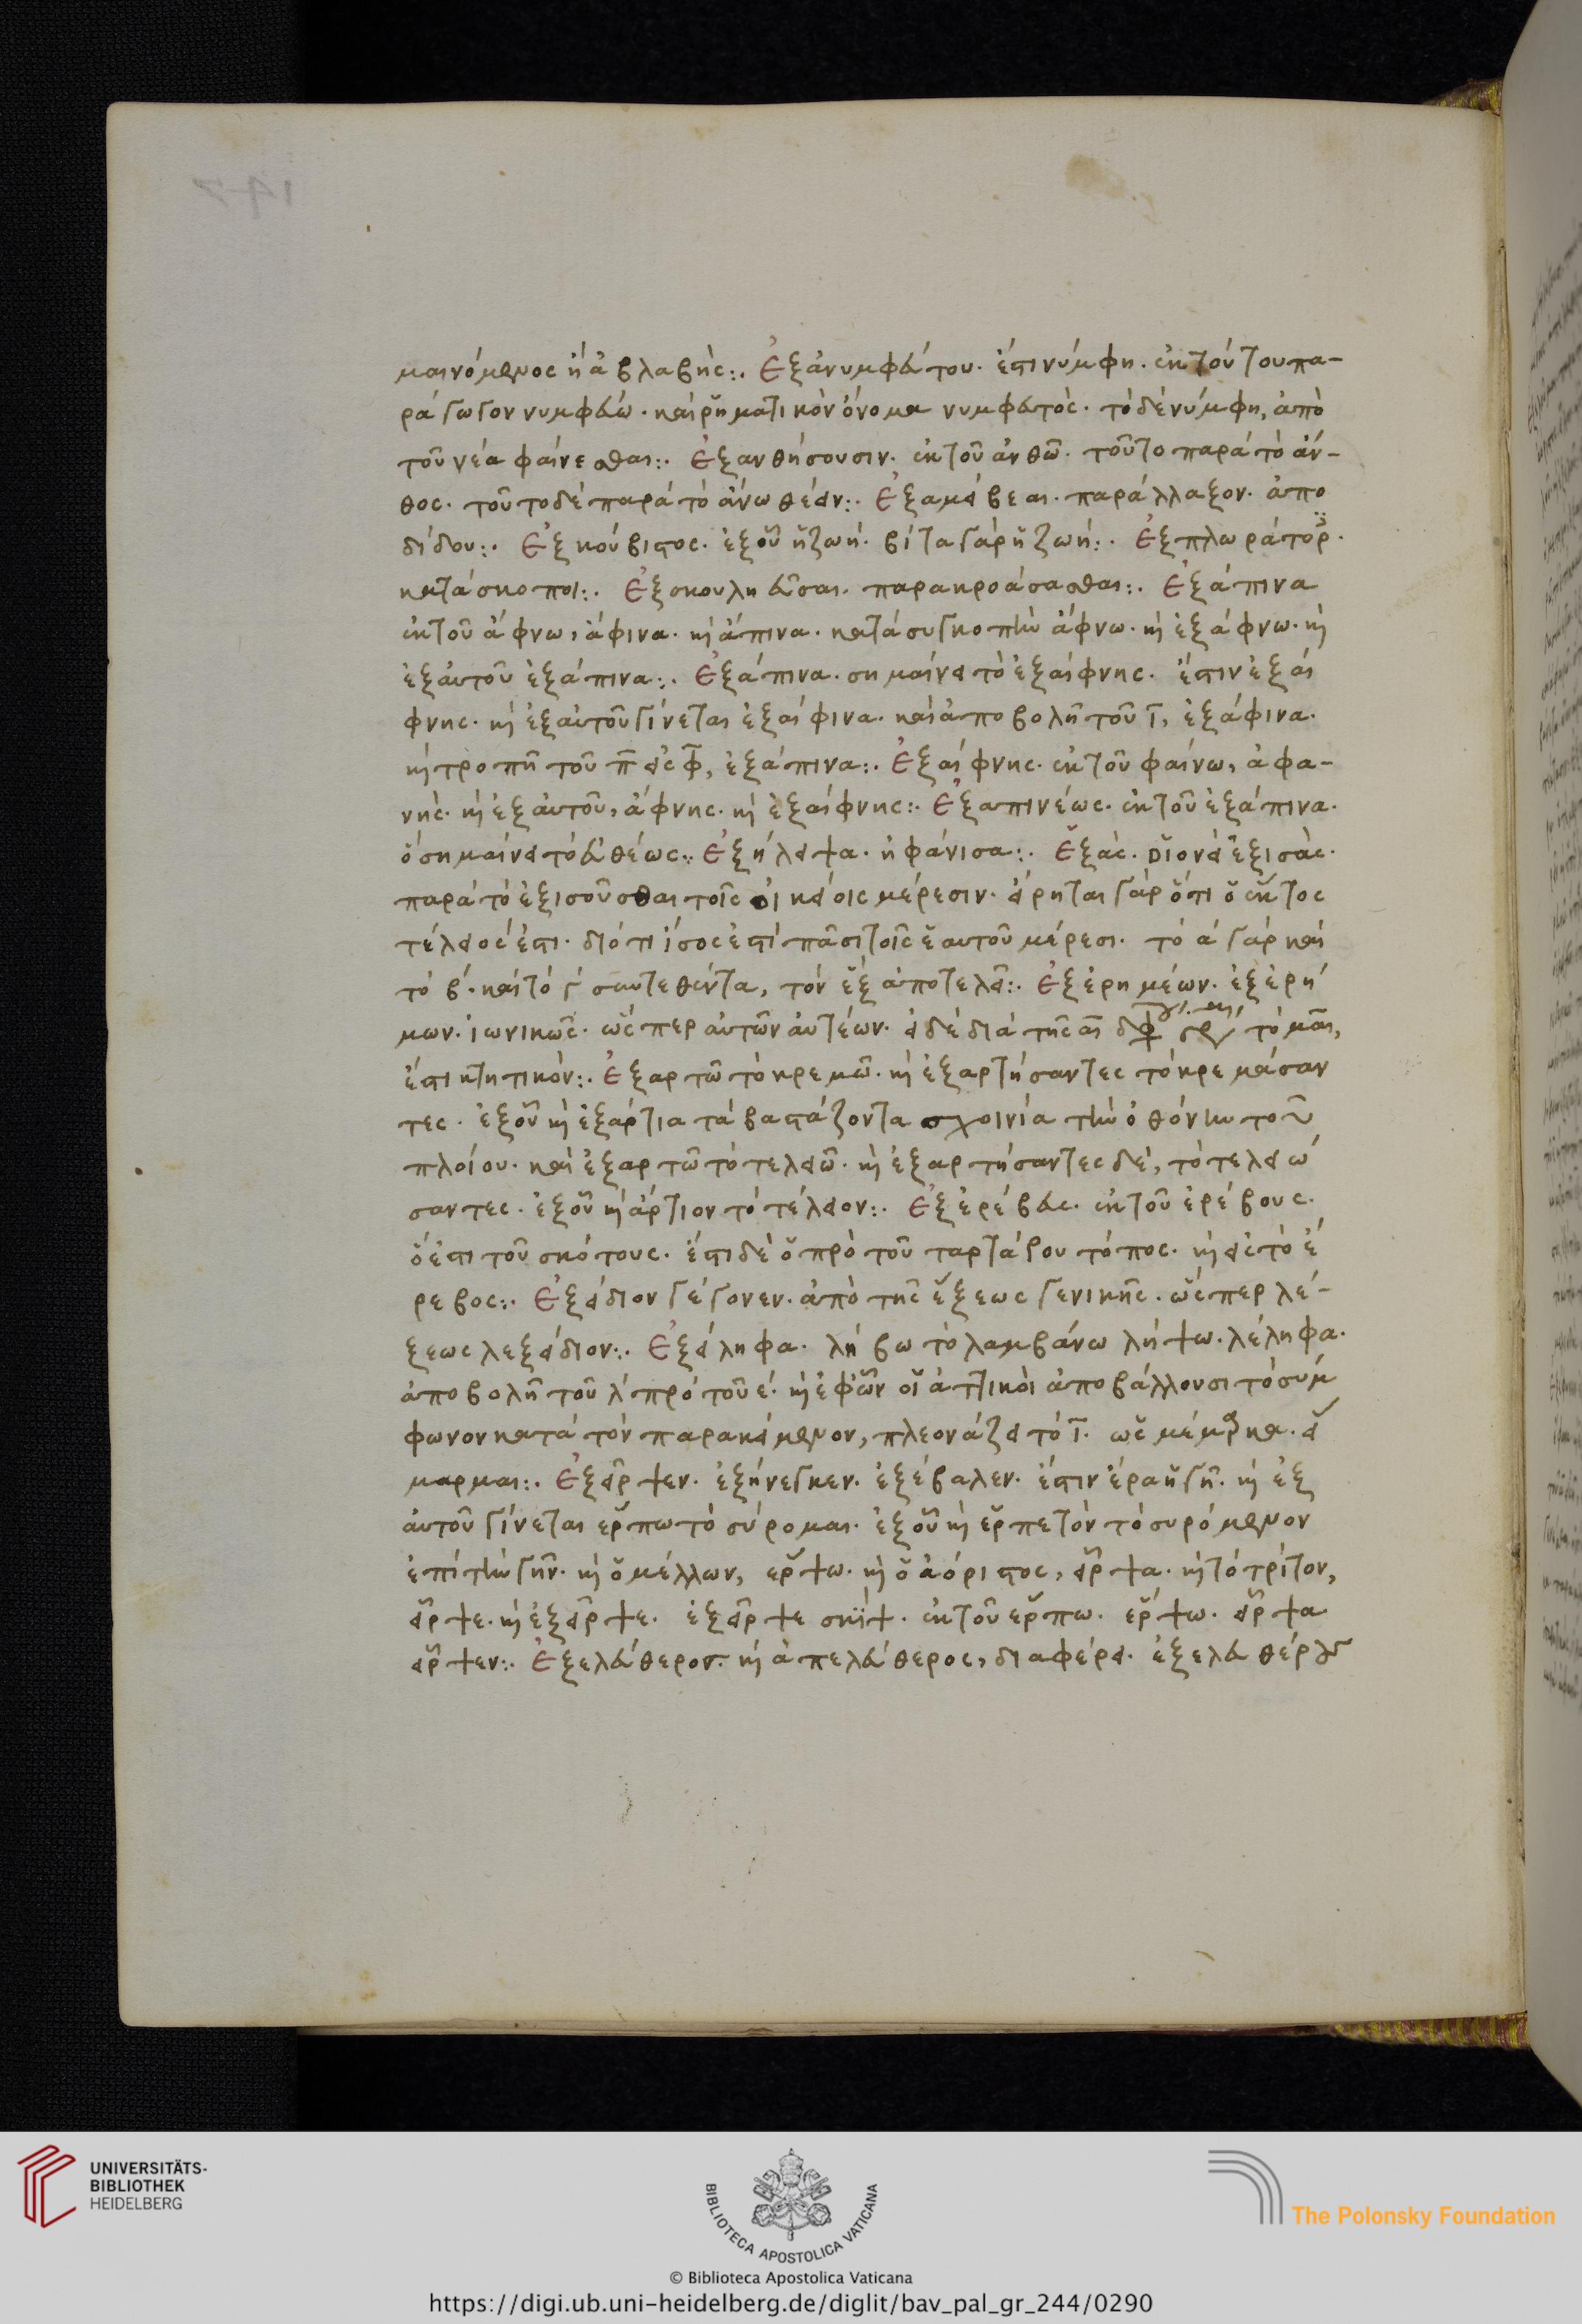 μαινόμενος ἢ ἀβλαβής:. Ἐξανυμφεύτου. ἔστι νύμφη. ἐκ τούτου πα-
ράγωγον νυμφεύω. καὶ ῥηματικὸν ὄνομα νυμφευτὸς. τὸ δὲ νύμφη, ἀπὸ
τοῦ νέα φαίνεσθαι:. Ἐξανθήσουσιν. ἐκ τοῦ ἀνθῶ. τοῦτο παρὰ τὸ ἄν-
θος. τοῦτο δὲ παρὰ τὸ ἄνω θέειν:. Ἐξαμείβεαι. παράλλαξον. ἀπο
δίδου:. Ἐξκούβιτος. ἐξ οὗ ἡ ζωή. βίτα γὰρ ἡ ζωή:. Ἐξπλωράτορ.
κατάσκοποι:. Ἐξσκουλκεῦσαι. παρακροάσασθαι:. Ἐξάπινα
ἐκ τοῦ ἄφνω, ἄφινα. καὶ ἄπινα. κατὰ συγκοπὴν ἄφνω. καὶ ἐξάφνω. καὶ
ἐξ αὐτοῦ ἐξάπινα:. Ἐξάπινα. σημαίνει τὸ ἐξαίφνης. ἔστιν ἐξαί
φνης. καὶ ἐξ αὐτοῦ γίνεται ἐξαίφινα. καὶ ἀποβολῇ τοῦ ι, ἐξάφινα.
καὶ τροπῇ τοῦ π εἰς φ, ἐξάπινα:. Ἐξαίφνης. ἐκ τοῦ φαίνω, ἀφα-
νής. καὶ ἐξ αὐτοῦ, ἄφνης. καὶ ἐξαίφνης:. Ἐξαπινέως. ἐκ τοῦ ἐξάπινα.
ὃ σημαίνει τὸ εὐθέως:. Ἐξήλειψα. ἠφάνισα:. Ἑξὰς. οἱονεὶ ἐξισὰς.
παρὰ τὸ ἐξισοῦσθαι τοῖς οἰκείοις μέρεσιν. εἴρηται γὰρ ὅτι ὁ ἕκτος
τέλειός ἐστι. διότι ἴσος ἐστὶ πᾶσι τοῖς ἑαυτοῦ μέρεσι. τὸ α γὰρ καὶ
τὸ β. καὶ τὸ γ συντεθέντα, τὸν ἓξ ἀποτελεῖ:. Ἐξ ἐρημέων. ἐξ ἐρή
μων. ἰωνικῶς. ὥσπερ αὐτῶν αὐτέων. εἰ δὲ διὰ τῆς αι διφ γρ τὸ μαι,
ἔστι κτητικὸν:. Ἐξαρτῶ τὸ κρεμῶ. καὶ ἐξαρτήσαντες τὸ κρεμάσαν
τες. ἐξ οὗ καὶ ἐξάρτια τὰ βαστάζοντα σχοινία τὴν ὀθόνην τοῦ
πλοίου. καὶ ἐξαρτῶ τὸ τελειῶ. καὶ ἐξαρτήσαντες δὲ, τὸ τελειώ
σαντες. ἐξ οὗ καὶ ἄρτιον τὸ τέλειον:. Ἐξ ἐρέβευς. ἐκ τοῦ ἐρέβους.
ὅ ἐστι τοῦ σκότους. ἔστι δὲ ὁ πρὸ τοῦ ταρτάρου τόπος. καὶ εἰς τὸ ἔ
ρεβος:. Ἑξείδιον γέγονεν. ἀπὸ τῆς ἕξεως γενικῆς. ὥσπερ λέ-
ξεως λεξείδιον:. Ἐξείληφα. λήβω τὸ λαμβάνω λήψω. λέληφα.
ἀποβολῇ τοῦ λ πρὸ τοῦ ε. καὶ ἐφ' ὧν οἱ ἀττικοὶ ἀποβάλλουσι τὸ σύμ
φωνον κατὰ τὸν παρακείμενον, πλεονάζει τὸ ι. ὡς μέμαρκα. εἵ
μαρμαι:. Ἐξεῖρψεν. ἐξήνεγκεν. ἐξέβαλεν. ἔστιν ἔρα ἡ γῆ. καὶ ἐξ
αὐτοῦ γίνεται ἕρπω τὸ σύρομαι. ἐξ οὗ καὶ ἑρπετὸν τὸ συρόμενον
ἐπὶ τὴν γῆν. καὶ ὁ μέλλων, ἕρψω. καὶ ὁ ἀόριστος, εἷρψα. καὶ τὸ τρίτον,
εἷρψε. καὶ ἐξεῖρψε. ἐξεῖρψε σκήψ. ἐκ τοῦ ἕρπω. ἕρψω. εἷρψα
εἷρψεν:. Ἐξελεύθερος. καὶ ἀπελεύθερος, διαφέρει. ἐξελευθέρους
UNIVERSITÄTS-
BIBLIOTHEK
HEIDELBERG
BIBLIOTECA APOSTOLICA VATICANA
The Polonsky Foundation
© Biblioteca Apostolica Vaticana
https://digi.ub.uni-heidelberg.de/diglit/bav_pal_gr_244/0290